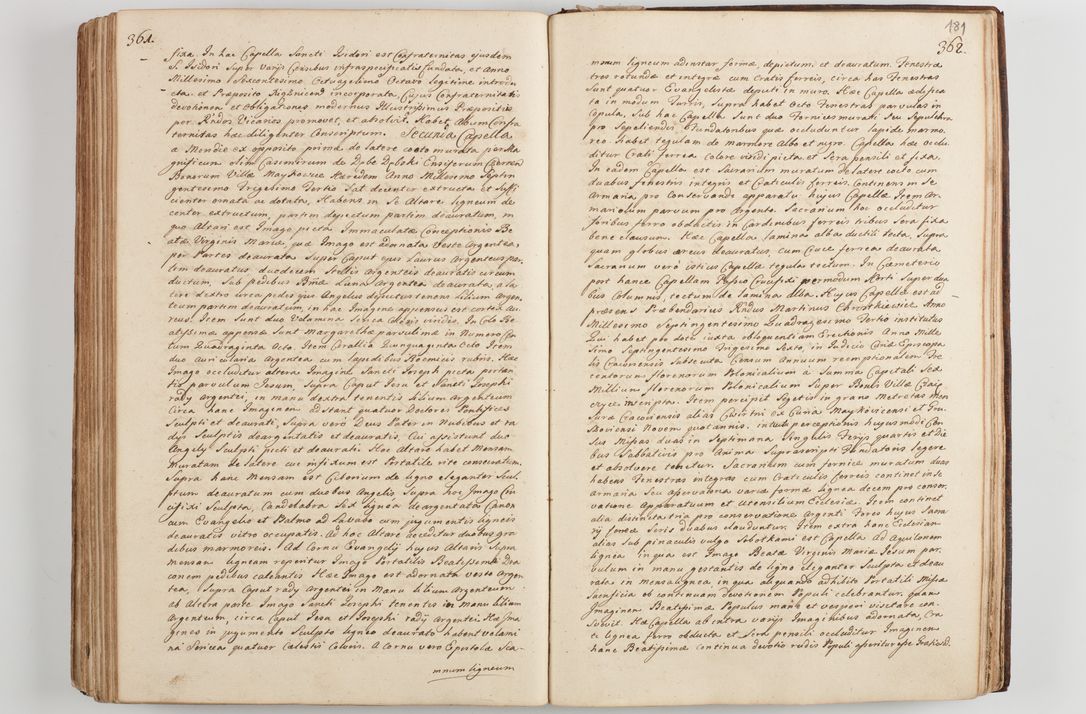 361.
fixa. In hac Capella Sancti Isidori est Confraternitas ejusdem
S. Isidori Super varijs Censibus infraspecificatis fundata, et Anno
Millesimo Sexcentesimo Octuagesimo Octavo legitime introdu
cta, et Præposito incorporata, Cujus Confraternitatis
devotionem et Obligationes modernus Illustrissimus Præpositus
per Rndos Vicarios promovet, et absolvit. Habet Album Confra
ternitas hæc diligenter Conscriptum. Secunda Capella
a Meridie ex opposito primæ de latere cocto murata per Ma
gnificum olim Casimirum de Ensiferum
Villæ Maykovice Hæredem Anno Millesimo Septin
gentesimo Trigesimo Tertio Sat decenter extructa et Suffi
cienter ornata ac dotata, Habens in Se Altare ligneum de
center extructum, partim depictum partim deauratum, in
quo Altari est Imago picta Immaculatæ Conceptionis Be
atæ Virginis Mariæ, quæ Imago est adornata Veste Argentea,
per Partes deaurata Super Caput ejus laurus Argenteus par
tim deauratus, duodecim Stellis argenteis deauratis circum
ductum, Sub pedibus Bmæ Luna Argentea deaurata, a la
tere dextro circa pedes ejus Angelus tenens lilium Argen
teum partim deauratum, in hac Imagine appensus est
Item Sunt duo Velamina Serica coloris viridis. In Collo Be
atissimæ appensæ Sunt Margarethæ parvulæ in Numero Cen
tum Quadraginta Octo. Item Corallia Quinquaginta Octo Item
duo Auricularia Argentea cum lapidibus Bohemicis rubris. Hæc
Imago occluditur altera Imagine Sancti Joseph picta portan
tis parvulum Jesum, Supra Caput Jesu et Sancti Josephi
radij argentei, in manu dextra tenentis lilium argenteum
Circa hanc Imaginem adstant quatuor Doctores Pontifices
Sculpti et deaurati, Supra vero Deus Pater in Nubibus et ra
dijs Sculptis deargentatis et deauratis, Cui assistunt duo
Angeli Sculpti picti et deaurati. Hoc Altare habet Mensam
Muratam de latere cui infixum est Portatile rite consecratum,
Supra hanc Mensam est Ciborium de ligno eleganter Scul
ptum deauratum cum duobus Angelis Supra hoc Imago Cru
cifixi Sculpta, Candelabra Sex lignea deargentata Canon
cum Evangelio et Psalmo ad Lavabo cum jugumentis ligneis
deauratis vitro occupatis. Ad hoc Altare acceditur duobus gra
dibus marmoreis. Ad Cornu Evangelij hujus Altaris Supra
mensam ligneam reperitur Imago Portatilis Beatissimæ Dra
conem pedibus calcantis Hæc Imago est adornata veste Argen
tea, Supra Caput radij Argentei in Manu lilium Argenteum
ab altera parte Imago Sancti Josephi tenentis in manu lilium
Argenteum, circa Caput Jesu et Josephi radij argentei Hæ Ima
gines in jugumento Sculpto ligneo deaurato habent velami
na Sericea quatuor Cælestis Coloris. A Cornu vero Epistolæ Sca-
mnum ligneum
181
362.
mnum ligneum adinstar formæ, depictum, et deauratum. Fenestræ
tres rotundæ et integræ cum Cratis ferreis, circa has Fenestras
Sunt quatuor Evangelistæ depicti in muro. Hæc Capella ædifica
ta in modum Turris, Supra habet Octo Fenestras parvulas in
Cupula, Sub hac Capella Sunt duo Fornices murati Seu Sepulchra
pro Sepeliendis Fundatoribus quæ occluduntur lapide marmo
reo. habet tegulam de marmore Albo et nigro Capella hæc occlu
ditur Crati ferrea colore viridi picta et Sera pensili et fixa.
In eadem Capella est Sacrarium muratum de latere cocto cum
duabus fenestris integris et Craticulis ferreis. Continens in Se
Armaria pro Conservando apparatu hujus Capellæ Item Ar
mariolum parvum pro Argento. Sacrarium hoc occluditur
foribus ferro obductis in Cardinibus ferreis tribus Sera fixa
bene clausum. Hæc Capella lamina alba ductili tecta, Supra
quam globus æreus deauratus, cum Cruce ferrea deaurata
Sacrarium vero istius Capellæ tegulis tectum. In Cæmeterio
post hanc Capellam Passio Crucifixi per modum Horti Super duo
bus Columnis, tectum de lamina alba. Hujus Capellæ est ad
præsens Præbendarius Rndus Martinus Anno
Millesimo Septingentesimo Quadragesimo Tertio institutus
Qui habet pro dote juxta obloquentiam Erectionis Anno Mille
simo Septingentesimo Trigesimo Sexto, in Judicio Cons Episcopa
lis Cracoviensis Subsecutæ Censum Annuum reemptionalem Tre
centorum florenorum Polonicalium à Summa Capitali Sex
Millium florenorum Polonicalium Super Bonis Villæ
inscripta. Item percipit Segetis in grano Metretas Men
suræ Cracoviensis alias Cwiertni ex Curia Maykovicensi et
Novem quotannis. intuitu perceptionis hujusmodi Cen
sus Missas duas in Septimana Singulis Ferijs quartis et Die
bus Sabbativis pro Anima Suprascripti Fundatoris legere
et absolvere tenetur. Sacrarium cum fornice muratum duas
habens Fenestras integras cum Craticulis ferreis continet in Se
Armaria Seu apervatoria variæ formæ lignea decem pro conser
vatione Apparatus et utensilium Ecclesiæ. Item continet
alia distincta tria pro conservatione Argenti Fores hujus Sacra
rij ferreæ Seris duabus clauduntur. Item extra hanc Ecclesiam
alias Sub pinaculis vulgo Sobotkami est Capella ad Aquilonem
lignea in qua est Imago Beatæ Virginis Mariæ Jesum par
vulum in manu gestantis de ligno eleganter Sculpta et deau
rata in Mensa lignea in qua aliquando adhibito Portatili Missæ
Sacrificia ob continuam devotionem Populi celebrantur. quam
Imaginem Beatissimæ Populus mane et vesperi visitare con
suevit. Hæ Capella ab extra varijs Imaginibus adornata, Cra
te lignea ferro obducta et Sera pensili occluditur Imaginem
hanc Beatissimæ continua devotio rudis Populi asseritur esse